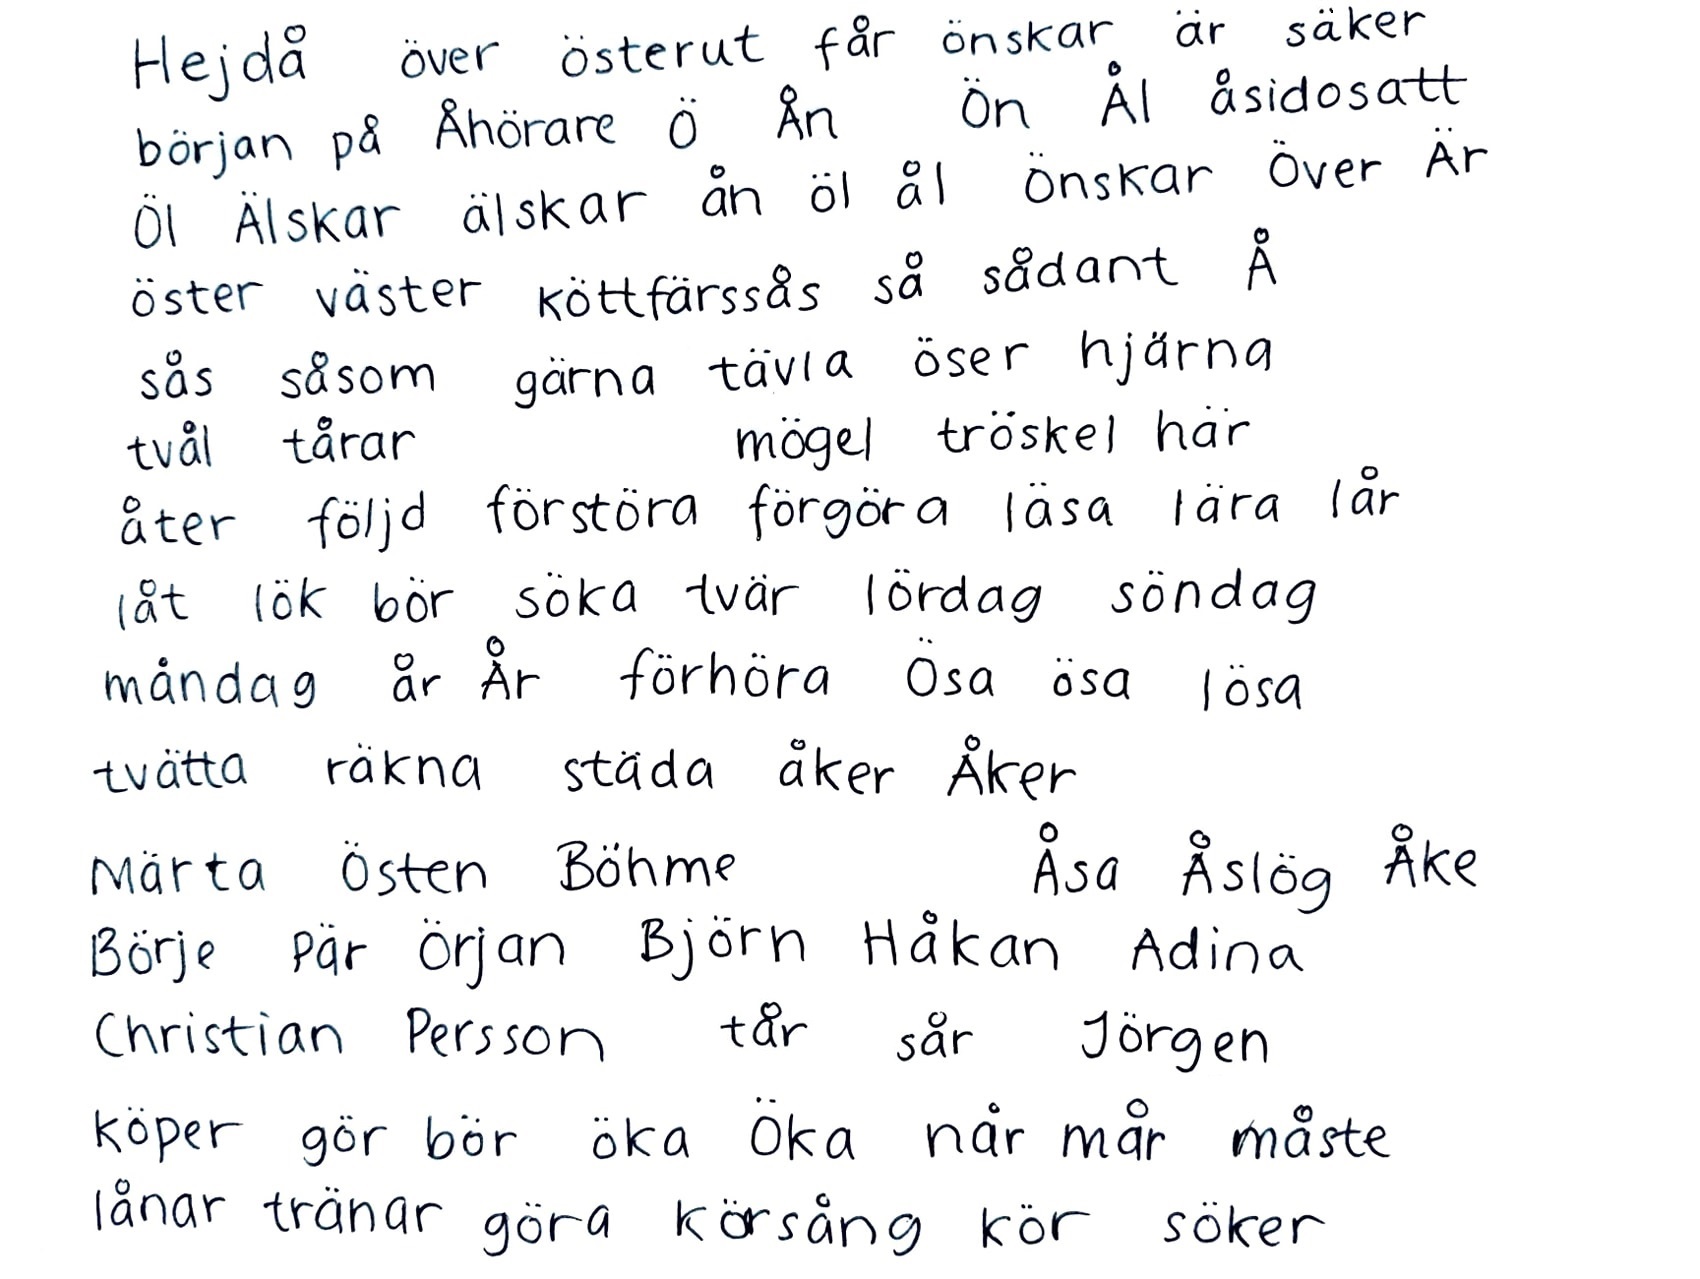 Hejdå över österut får önskar är säker
början på Åhörare Ö Ån Ön Ål åsidosatt
Öl Älskar älskar ån öl ål Önskar Över Är
öster väster köttfärssås så sådant Å
sås såsom gärna tävla öser hjärna
tvål tårar mögel tröskel här
åter följd förstöra förgöra läsa lära lår
låt lök bör söka tvär lördag söndag
måndag år År förhöra Ösa ösa lösa
tvätta räkna städa åker Åker
Märta Östen Böhme Åsa Åslög Åke
Börje Pär Örjan Björn Håkan Adina
Christian Persson tår sår Jörgen
köper gör bör öka Öka når mår måste
lånar tränar göra körsång kör söker